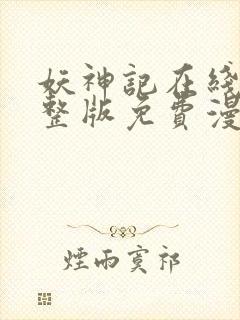 妖神記在綫
整版免費漫
煙雨寞祁